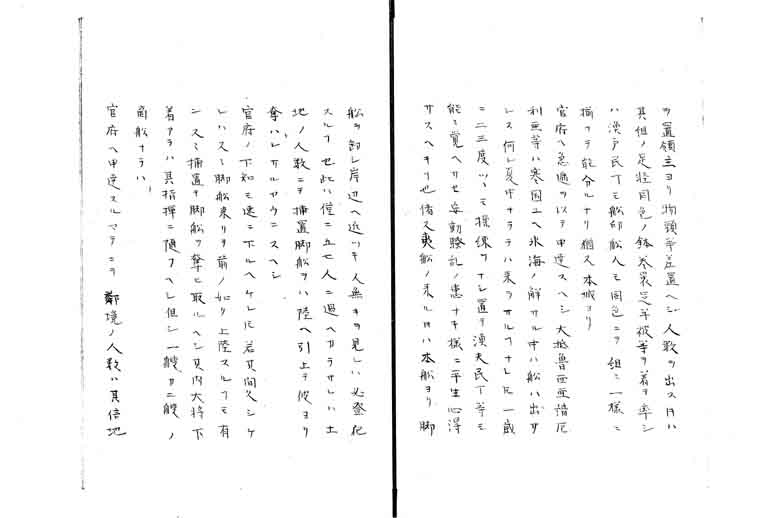 ヲ置領主ヨリ物頭等差置ヘシ人数ヲ出ス日ハ
其組ノ足軽同色ノ鉢巻裳足半被等ヲ着テ率シ
ハ漁戸民丁モ船印船人モ同色ニテ組ミ一様ニ
揃フテ能分ルナリ猶又本城ヨリ
官府ヘ急逓ヲ以テ申達スヘシ大抵魯西亜諳厄
利亜等ハ寒国ユヘ氷海ノ解サル中ハ船ハ出サ
レス何レ夏中ナラテハ来ラサルフナレ𪜈一歳
ニ二三度ツヽモ操練サナシ置テ漁夫民丁等モ
能ミ覚ヘサセ妄動騒乱ノ患ナキ様ニ平生心得
サスヘキフ也偖又夷船ノ来ル日ハ本船ヨリ脚
船ヲ卸シ岸辺ヘ近ツキ人無キヲ見レハ必登陸
スルフ也此ハ僅ニ五七人ニ過ヘカラサレハ土
地ノ人数ニテ捕置脚船ヲハ陸ヘ引上テ彼ヨリ
奪ハレサルヤウニスヘシ
官府ノ下知モ速ニ下ルヘケレ𪜈若其間久シケ
レハ又ミ脚船来リテ前ノ如ク上陸スルフモ有
ン又ミ捕置テ脚船ヲ奪ヒ取ルヘシ其内大将下
着アラハ其指揮ニ随フヘシ但シ一艘カニ艘ノ
商船ナラハ、
官府ヘ申達スルマテニテ鄰境ノ人数ハ其信地